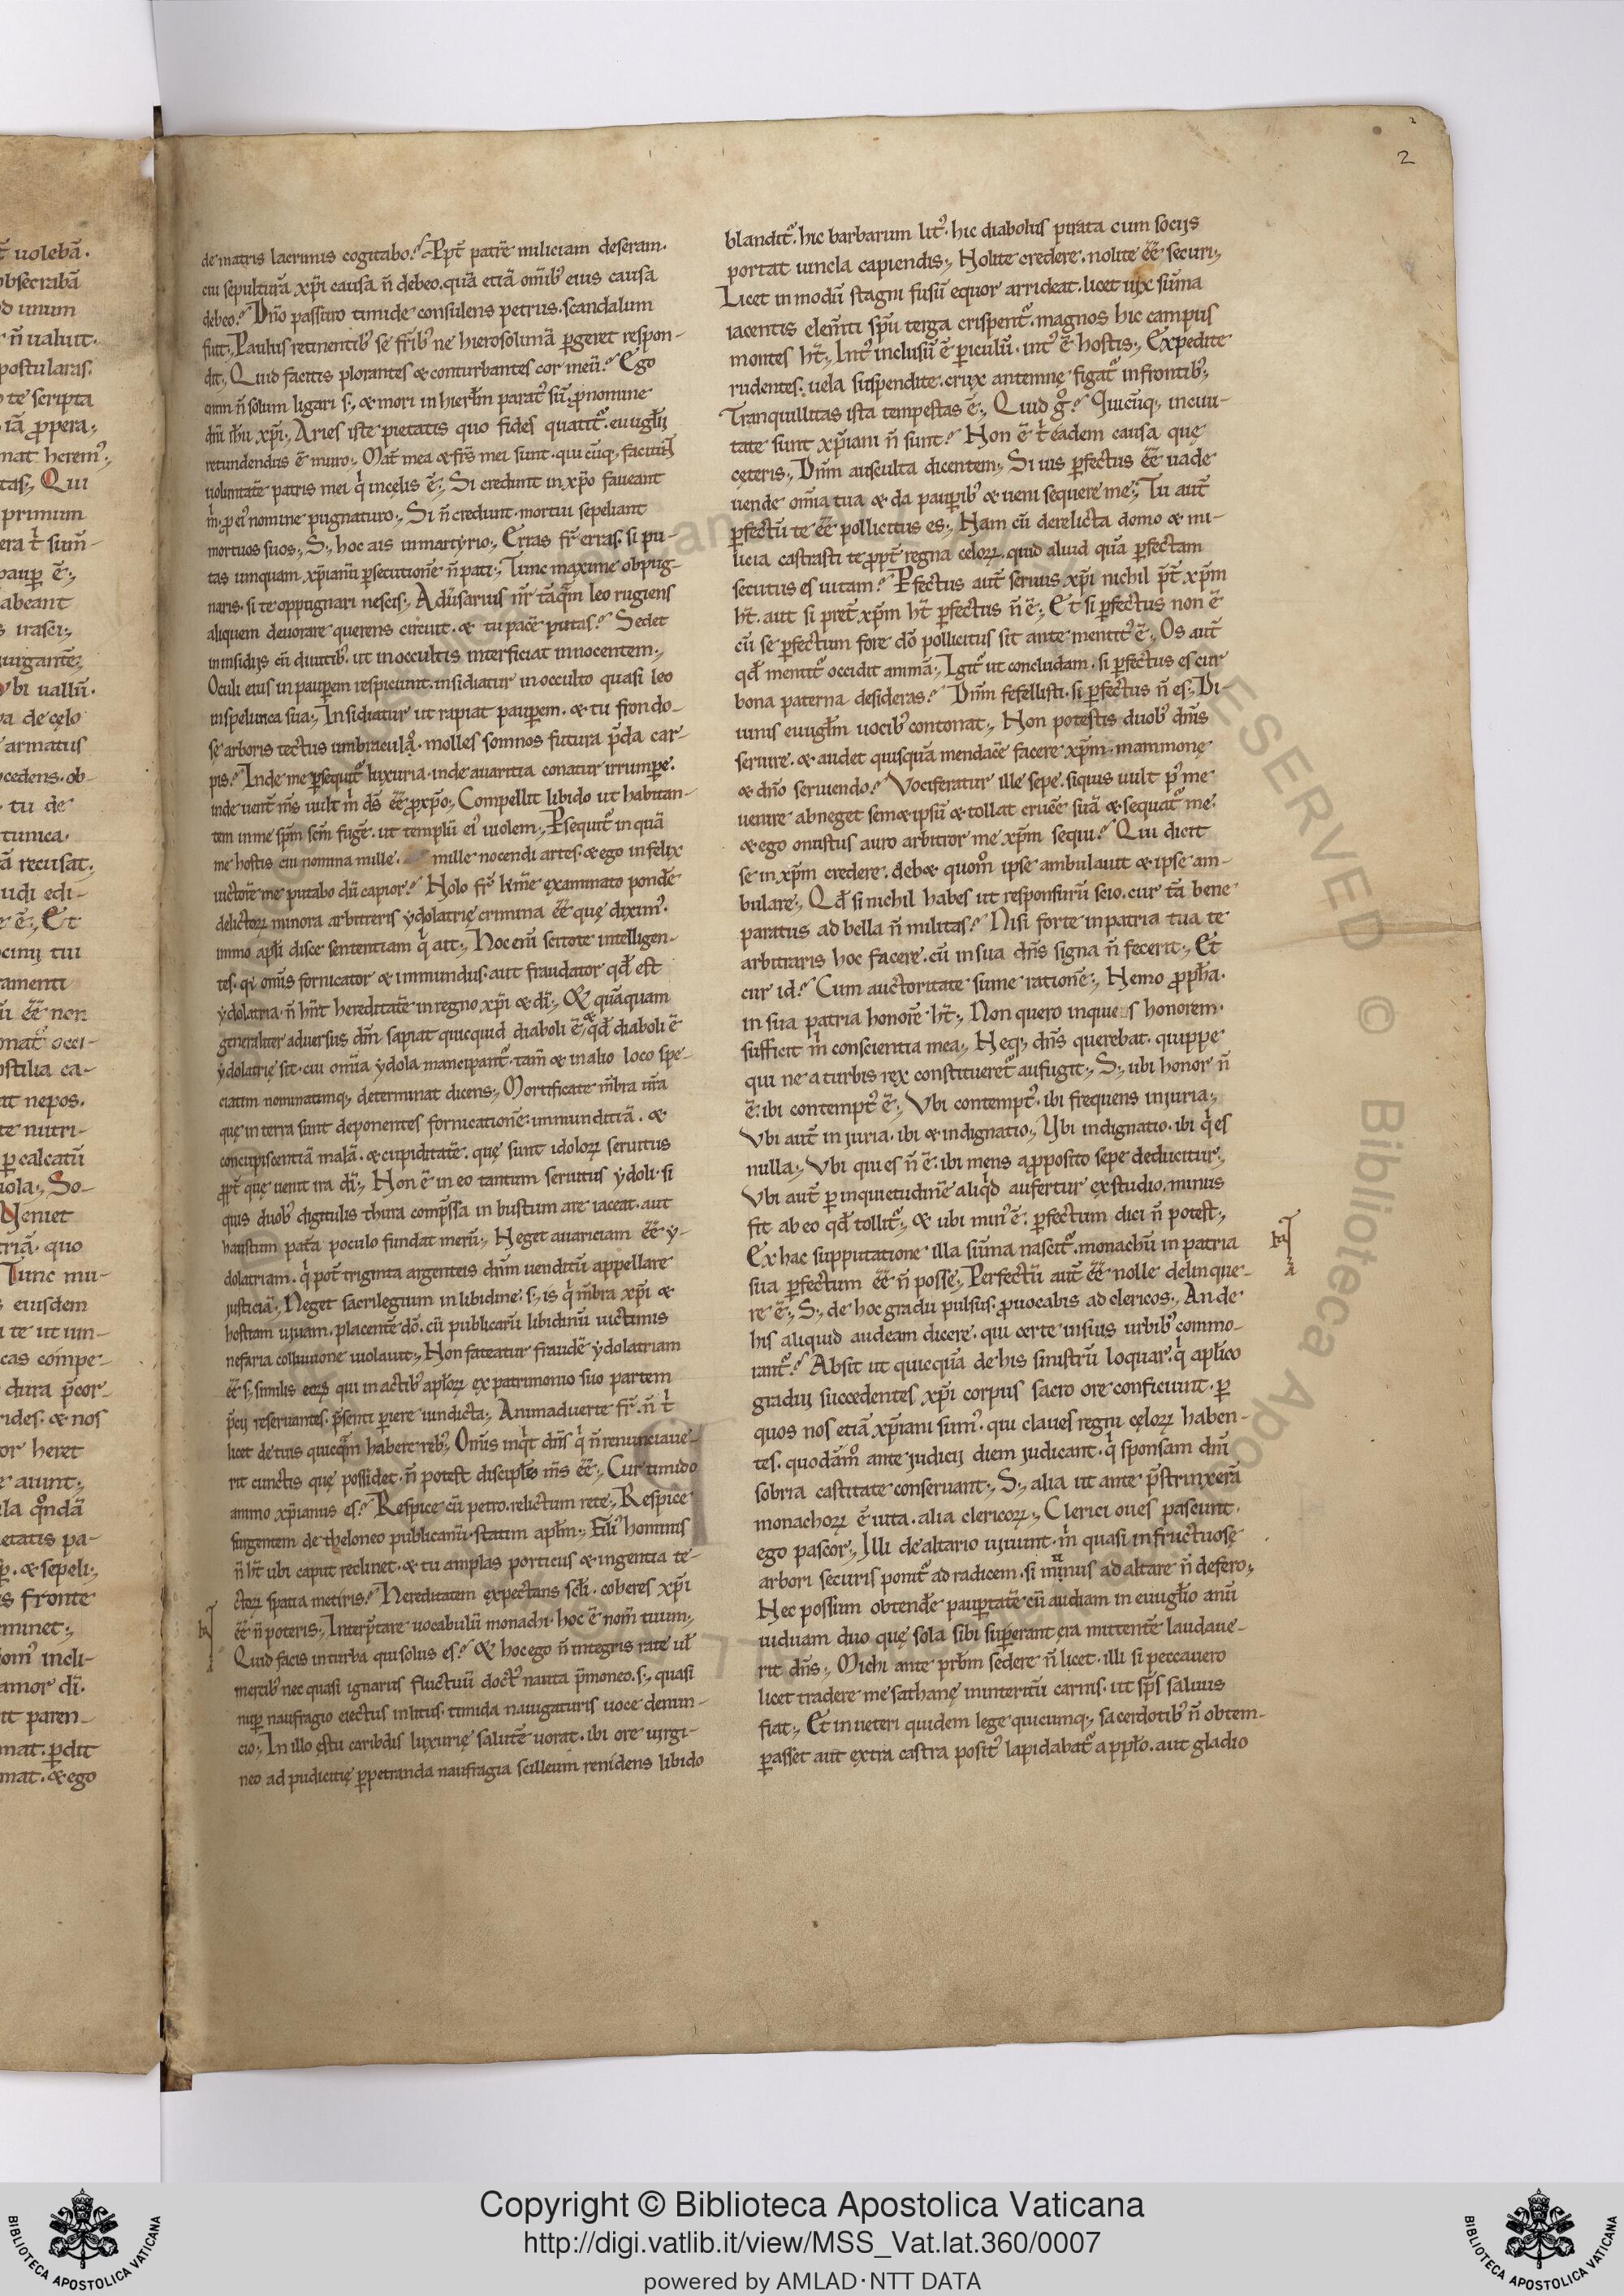 de matris lacrimis cogitabo? Ppt̄ patrē miliciam deseram.
cui sepulturā xp̄i causa n̄ debeo. quā etiā om̄ib; eius causa
debeo? Dn̄o passuro timide consulens petrus. scandalum
fuit., Paulus retinentib; se fr̄ib; ne hierosolimā ꝑgeret respon-
dit., Quid facitis plorantes & conturbantes cor meū? Ego
enim n̄ solum ligari s;, & mori in hierl̄m parat᾽ sū. ꝓ nomine
dn̄i ih̄u xp̄i., Aries iste pietatis quo fides quatit᾽. euuḡlij
retundendus ē muro., Mat̄ mea & fr̄s mei sunt. qui cūq;, faciunt
uoluntatē patris mei q̇ in celis ē., Si credunt in xp̄o faueant
ṁ. ꝓ ei᾽ nomine pugnaturo., Si n̄ credunt. mortui sepeliant
mortuos suos., S;, hoc ais in martyrio., Erras fr̄ erras. si pu-
tas umquam xp̄ianū ꝑsecutionē n̄ pati., Tunc maxime obpug-
naris. si te oppugnari nescis., Aduersarius nr̄ tāq̄m leo rugiens
aliquem deuorare querens circuit. & tu pacē putas? Sedet
in insidijs cū diuitib;. ut in occultis interficiat innocentem.,
Oculi eius in pauꝑem respiciunt. insidiatur in occulto quasi leo
in spelunca sua., Insidiatur ut rapiat pauꝑem. & tu frondo-
se arboris tectus umbraculo. molles somnos futura p̄da car-
pis? Inde me ꝑsequit᾽ luxuria. inde auaritia conatur irrumꝑe.
inde uent̄ m̄s uult ṁ d̄s ēē ꝓ xp̄o., Compellit libido ut habitan-
tem in me sp̄m sc̄m fugē. ut templū ei᾽ uiolem., Psequit᾽ inquā
me hostis cui nomina mille. mille nocendi artes. & ego infelix
uictorē me putabo dū capior? Nolo fr̄ km̄e examinato pondēe
delictoꝝ minora arbitreris ydolatrię crimina ēē quę dixim᾽.
immo apl̄i disce sententiam q̇ ait., Hoc enī scitote intelligen-
tes. qi om̄is fornicator & immundus. aut fraudator qd̄ est
ydolatria. n̄ hn̄t hereditatē in regno xp̄i & dī., & quāquam
generaliter aduersus dn̄m sapiat quicquid diaboli ē, & qd̄ diaboli ē
ydolatrię sit. cui om̄ia ydola mancipant᾽. tam̄ & in alio loco spe-
ciatim nominatimq; determinat dicens., Mortificate m̄bra ur̄a
quę in terra sunt deponentes fornicationē. immunditiā. &
concupiscentiā malā. & cupiditatē. quę sunt idoloꝝ seruitus
ꝓpt̄ quę uenit ira dī., Non ē in eo tantum seruitus ydoli. si
quis duob; digitulis thura comp̄ssa in bustum are iaceat. aut
haustum pat̄a poculo fundat merū., Neget auariciam ēē y-
dolatriam. q̇ pot̄ triginta argenteis dn̄m uenditū appellare
iusticiā., Neget sacrilegium in libidine. s;, is q̇ m̄bra xp̄i &
hostiam uiuam. placentē dō. cū publicarū libidinū uictimis
nefaria colluuione uiolauit., Non fateatur fraudē ydolatriam
ēē s;, similis eoꝝ qui in actib; apl̄oꝝ ex patrimonio suo partem
p̄cij reseruantes. p̄senti ꝑiere uindicta., Animaduerte fr̄. n̄ t̄
licet de tuis quicq̄m habere reb;. Om̄is inq̇t dn̄s q̇ n̄ renunciaue-
rit cunctis quę possidet. n̄ potest discipl̄s m̄s ēē., Cur timido
animo xp̄ianus es? Respice cū petro. relictum rete., Respice
surgentem de theloneo publicanū. statim apl̄m., Fili᾽ hominis
n̄ ht̄ ubi caput reclinet. & tu amplas porticus & ingentia te-
ctoꝝ spatia metiris? Hereditatem expectans scl̄i. coheres xp̄i
ēē n̄ poteris., Interp̄tare uocabulū monachi. hoc ē nom̄ tuum.,
Quid facis in turba qui solus es? & hoc ego n̄ integris rate ul̄
mercib; nec quasi ignarus fluctuū doct᾽ nauta p̄moneo. s;, quasi
nuꝑ naufragio eiectus in litus. timida nauigaturis uoce denun-
cio., In illo ęstu caribdis luxurię salutē uorat. ibi ore uirgi-
neo ad pudicitię ꝑpetranda naufragia scilleum renidens libido
blandit᾽. hic barbarum lit᾽. hic diabolus pirata cum socijs
portat uincla capiendis., Nolite credere. nolite ēē securi.,
Licet in modū stagni fusū equor arrideat. licet uix sūma
iacentis elem̄ti sp̄u terga crispent᾽. magnos hic campus
montes ht̄., Int᾽ inclusū ē ꝑiculū. int᾽ ē hostis., Expedite
rudentes. uela suspendite. crux antemnę figat᾽ in frontib;.,
Tranquillitas ista tempestas ē., Quid g̊? Quicūq;, in ciui-
tate sunt xp̄iani n̄ sunt? Non ē t̄ eadem causa quę
cęteris., Dn̄m ausculta dicentem., Si uis ꝑfectus ēē uade
uende om̄ia tua & da pauꝑib; & ueni sequere me., Tu aut̄
ꝑfectū te ēē pollicitus es., Nam cū derelicta domo & mi-
licia castrasti te ꝓpt̄ regna celoꝝ. quid aliud quā ꝑfectam
secutus es uitam? Pfectus aut̄ seruus xp̄i nichil p̄t̄ xp̄m
ht̄. aut si pret̄ xp̄m ht̄ ꝑfectus n̄ ē., Et si ꝑfectus non ē
cū se ꝑfectum fore dō pollicitus sit ante mentit᾽ ē., Os aut̄
qd̄ mentit᾽ occidit animā., Igit᾽ ut concludam. si ꝑfectus es cur
bona paterna desideras? Dn̄m fefellisti. si ꝑfectus n̄ es., Di-
uinis euuḡl̄m uocib; contonat., Non potestis duob; dn̄is
seruire. & audet quisquā mendacē facere xp̄m. mammonę
& dn̄o seruiendo? Vociferatur ille sepe. siquis uult p᾽ me
uenire abneget sem&ipsū & tollat crucē suā & sequat᾽ me.
& ego onustus auro arbitror me xp̄m sequi? Qui dicit
se in xp̄m credere. deb& quom̊ ipse ambulauit & ipse am-
bulare., Qd̄ si nichil habes ut responsurū scio. cur tā bene
paratus ad bella n̄ militas? Nisi forte in patria tua te
arbitraris hoc facere. cū in sua dn̄s signa n̄ fecerit., Et
cur id? Cum auctoritate sume rationē., Nemo ꝓph̄a.
in sua patria honorē ht̄., Non quero inquies honorem.
sufficit ṁ conscientia mea., Neq; dn̄s querebat. quippe
qui ne a turbis rex constitueret᾽ aufugit., S;, ubi honor n̄
ē. ibi contempt᾽ ē., Vbi contempt᾽. ibi frequens iniuria.,
Vbi aut̄ iniuria. ibi & indignatio., Vbi indignatio. ibi q̇es
nulla., Vbi quies n̄ ē. ibi mens a ꝓposito sepe deducitur.,
Vbi aut̄ ꝑ inquietudinē aliq̇d aufertur ex studio. minus
fit ab eo qd̄ tollit᾽., & ubi min᾽ ē. ꝑfectum dici n̄ potest.,
Ex hac supputatione illa sūma nascit᾽. monachū in patria
sua ꝑfectum ēē n̄ posse., Perfectū aut̄ ēē nolle delinque-
re ē., S;, de hoc gradu pulsus. ꝓuocabis ad clericos., An de
his aliquid audeam dicere. qui certe in suis urbib; commo-
rant᾽? Absit ut quicquā de his sinistrū loquar. q̇ apl̄ico
gradui succedentes xp̄i corpus sacro ore conficiunt. ꝑ
quos nos etiā xp̄iani sum᾽. qui claues regni cęloꝝ haben-
tes. quodām̊ ante judicij diem judicant. q̇ sponsam dn̄i
sobria castitate conseruant., S;, alia ut ante p̄strinxerā
monachoꝝ ē uita. alia clericoꝝ., Clerici oues pascunt.
ego pascor., Illi de altario uiuunt. ṁ quasi infructuosę
arbori securis ponit᾽ ad radicem. si munus ad altare n̄ defero.,
Nec possum obtendēe pauꝑtatē cū audiam in euuḡl̄io anū
uiduam duo quę sola sibi suꝑerant ęra mittentē laudaue-
rit dn̄s., Michi ante prb̄m sedere n̄ licet. illi si peccauero
licet tradere me sathanę in interitū carnis. ut sp̄s saluus
fiat., Et in ueteri quidem lege quicumq; sacerdotib; n̄ obtem-
ꝑasset aut extra castra posit᾽ lapidabat᾽ a pp̄lo. aut gladio
2
Copyright © Biblioteca Apostolica Vaticana
http://digi.vatlib.it/view/MSS_Vat.lat.360/0007
powered by AMLAD·NTT DATA
BIBLIOTECA APOSTOLICA VATICANA
BIBLIOTECA APOSTOLICA VATICANA